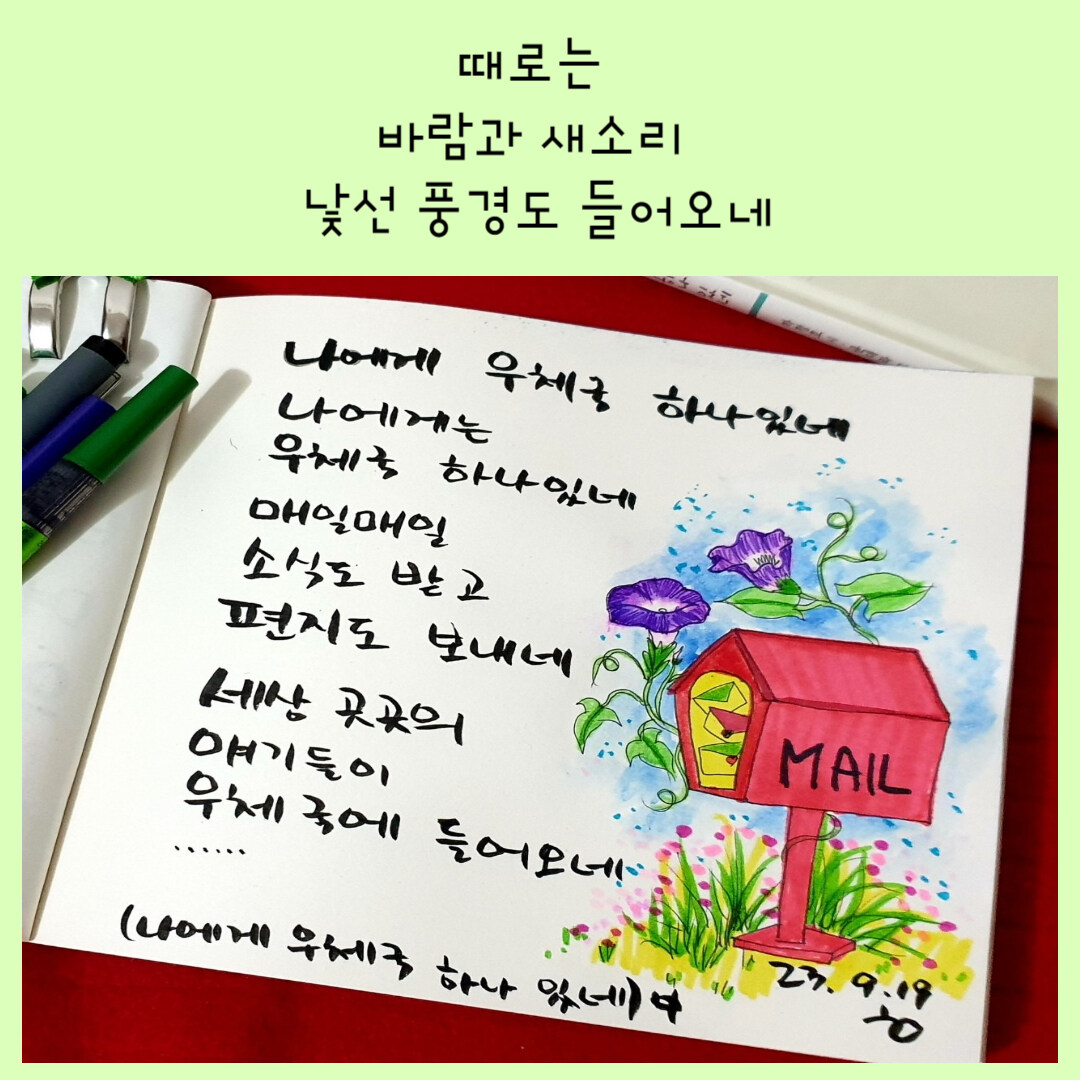 때로는
바람과 새소리
낯선 풍경도 들어오네
나에게 우체국 하나있네
나에게는
우체국 하나있네
매일매일
소식도 받고
편지도 보내네
세상 곳곳의
얘기들이
우체국에 들어오네
......
(나에게 우체국 하나 있네) 中
MAIL
23. 9. 19